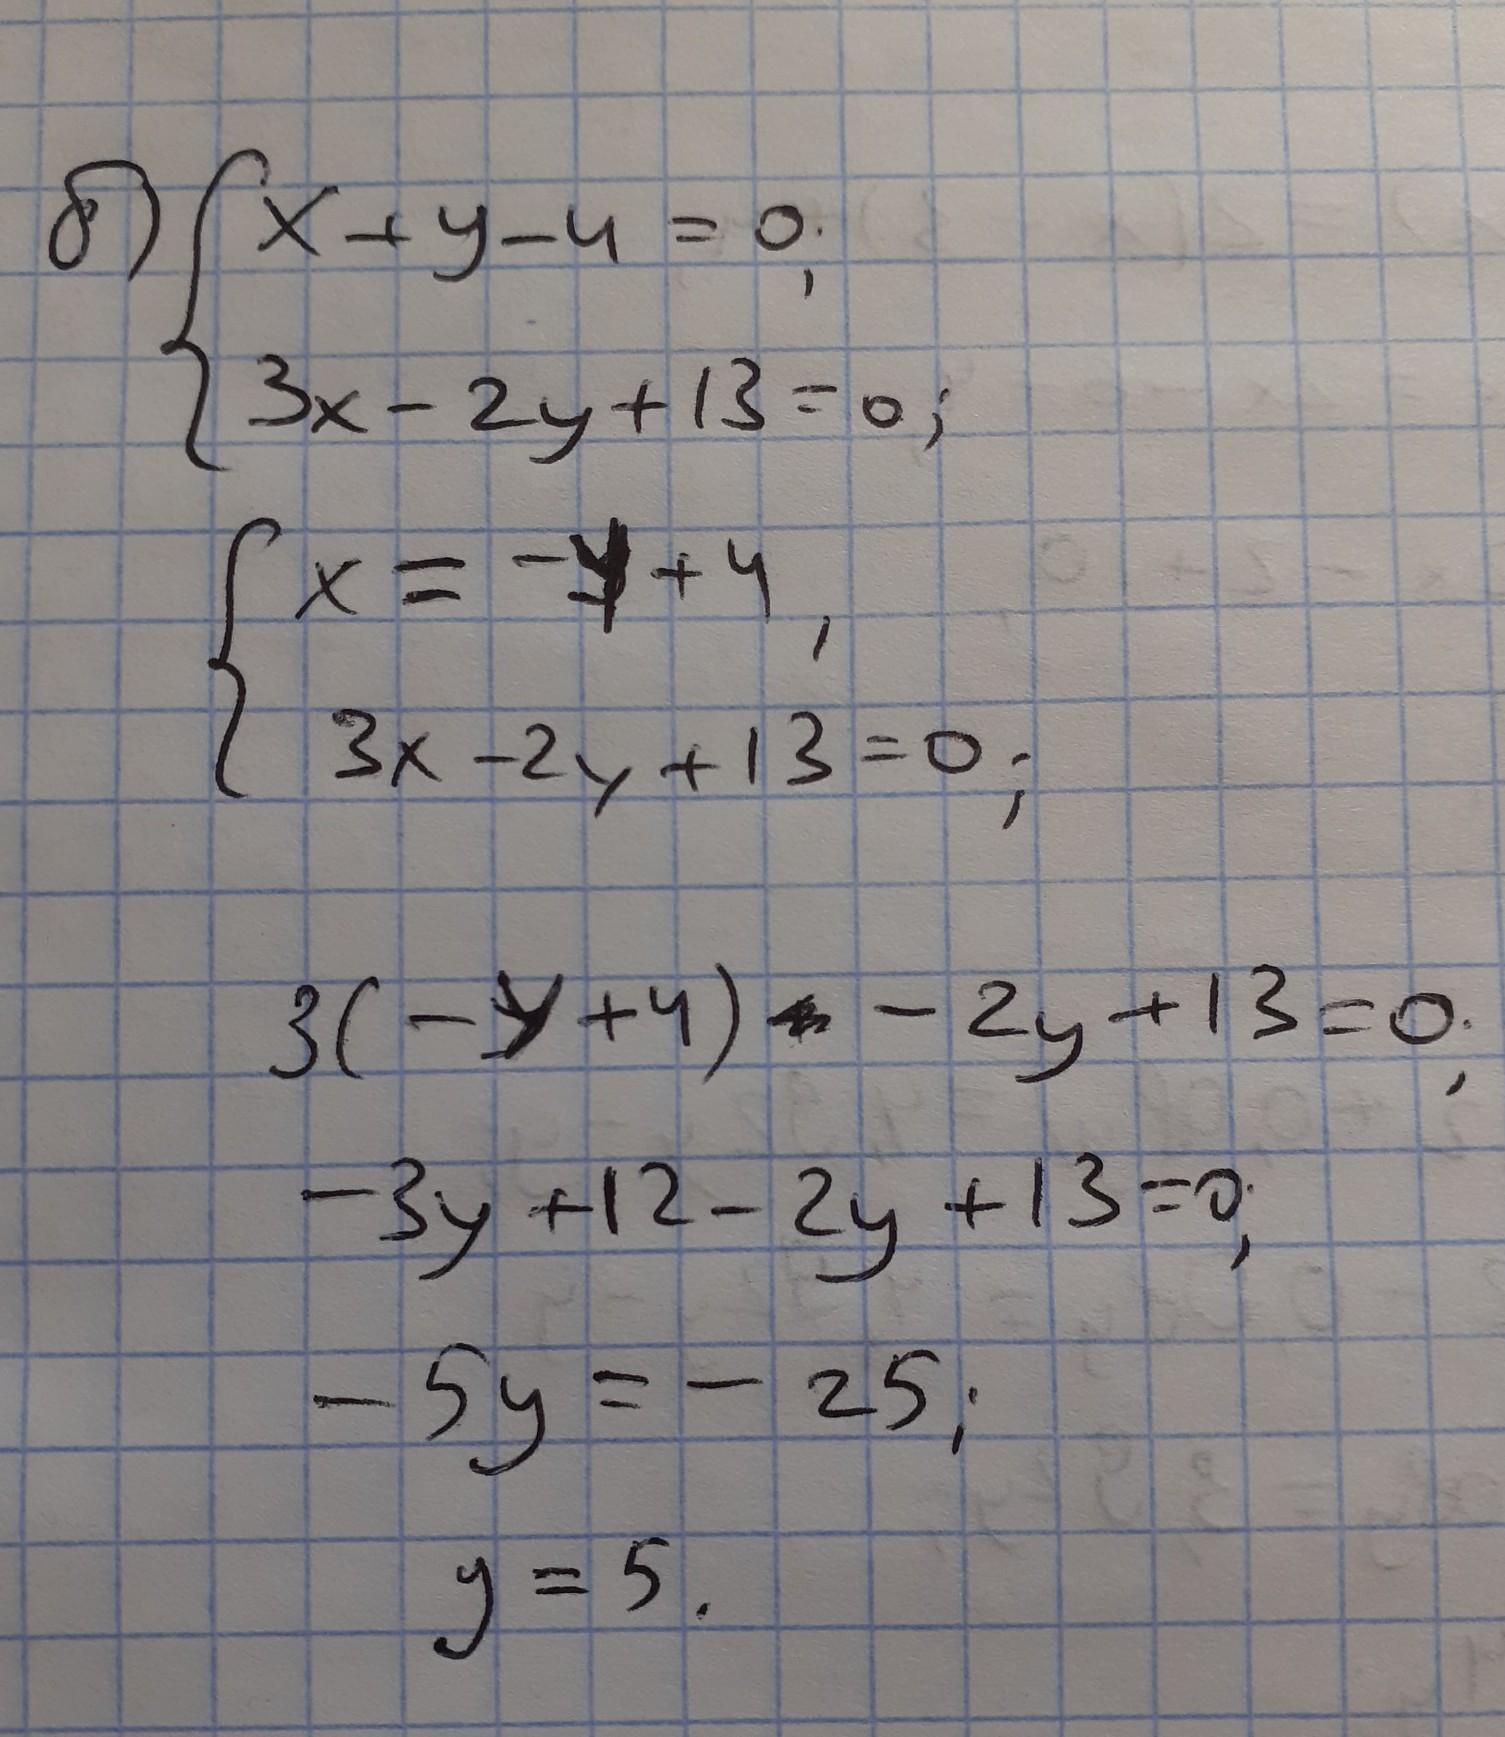 б) { x + y - 4 = 0;
3x - 2y + 13 = 0;
{ x = -y + 4,
3x - 2y + 13 = 0;
3(-y + 4) - 2y + 13 = 0;
-3y + 12 - 2y + 13 = 0;
-5y = -25;
y = 5.